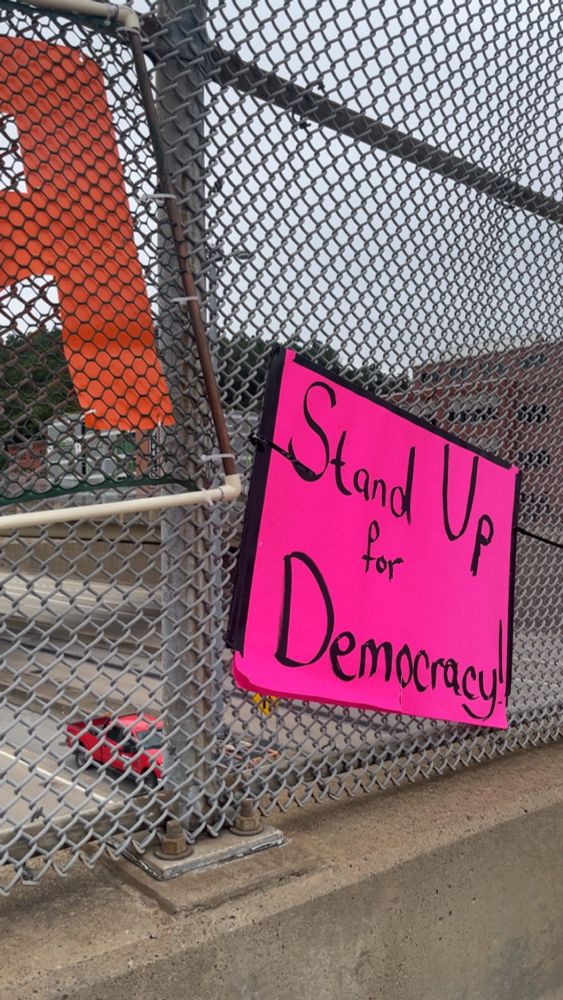 Stand Up
for
Democracy!